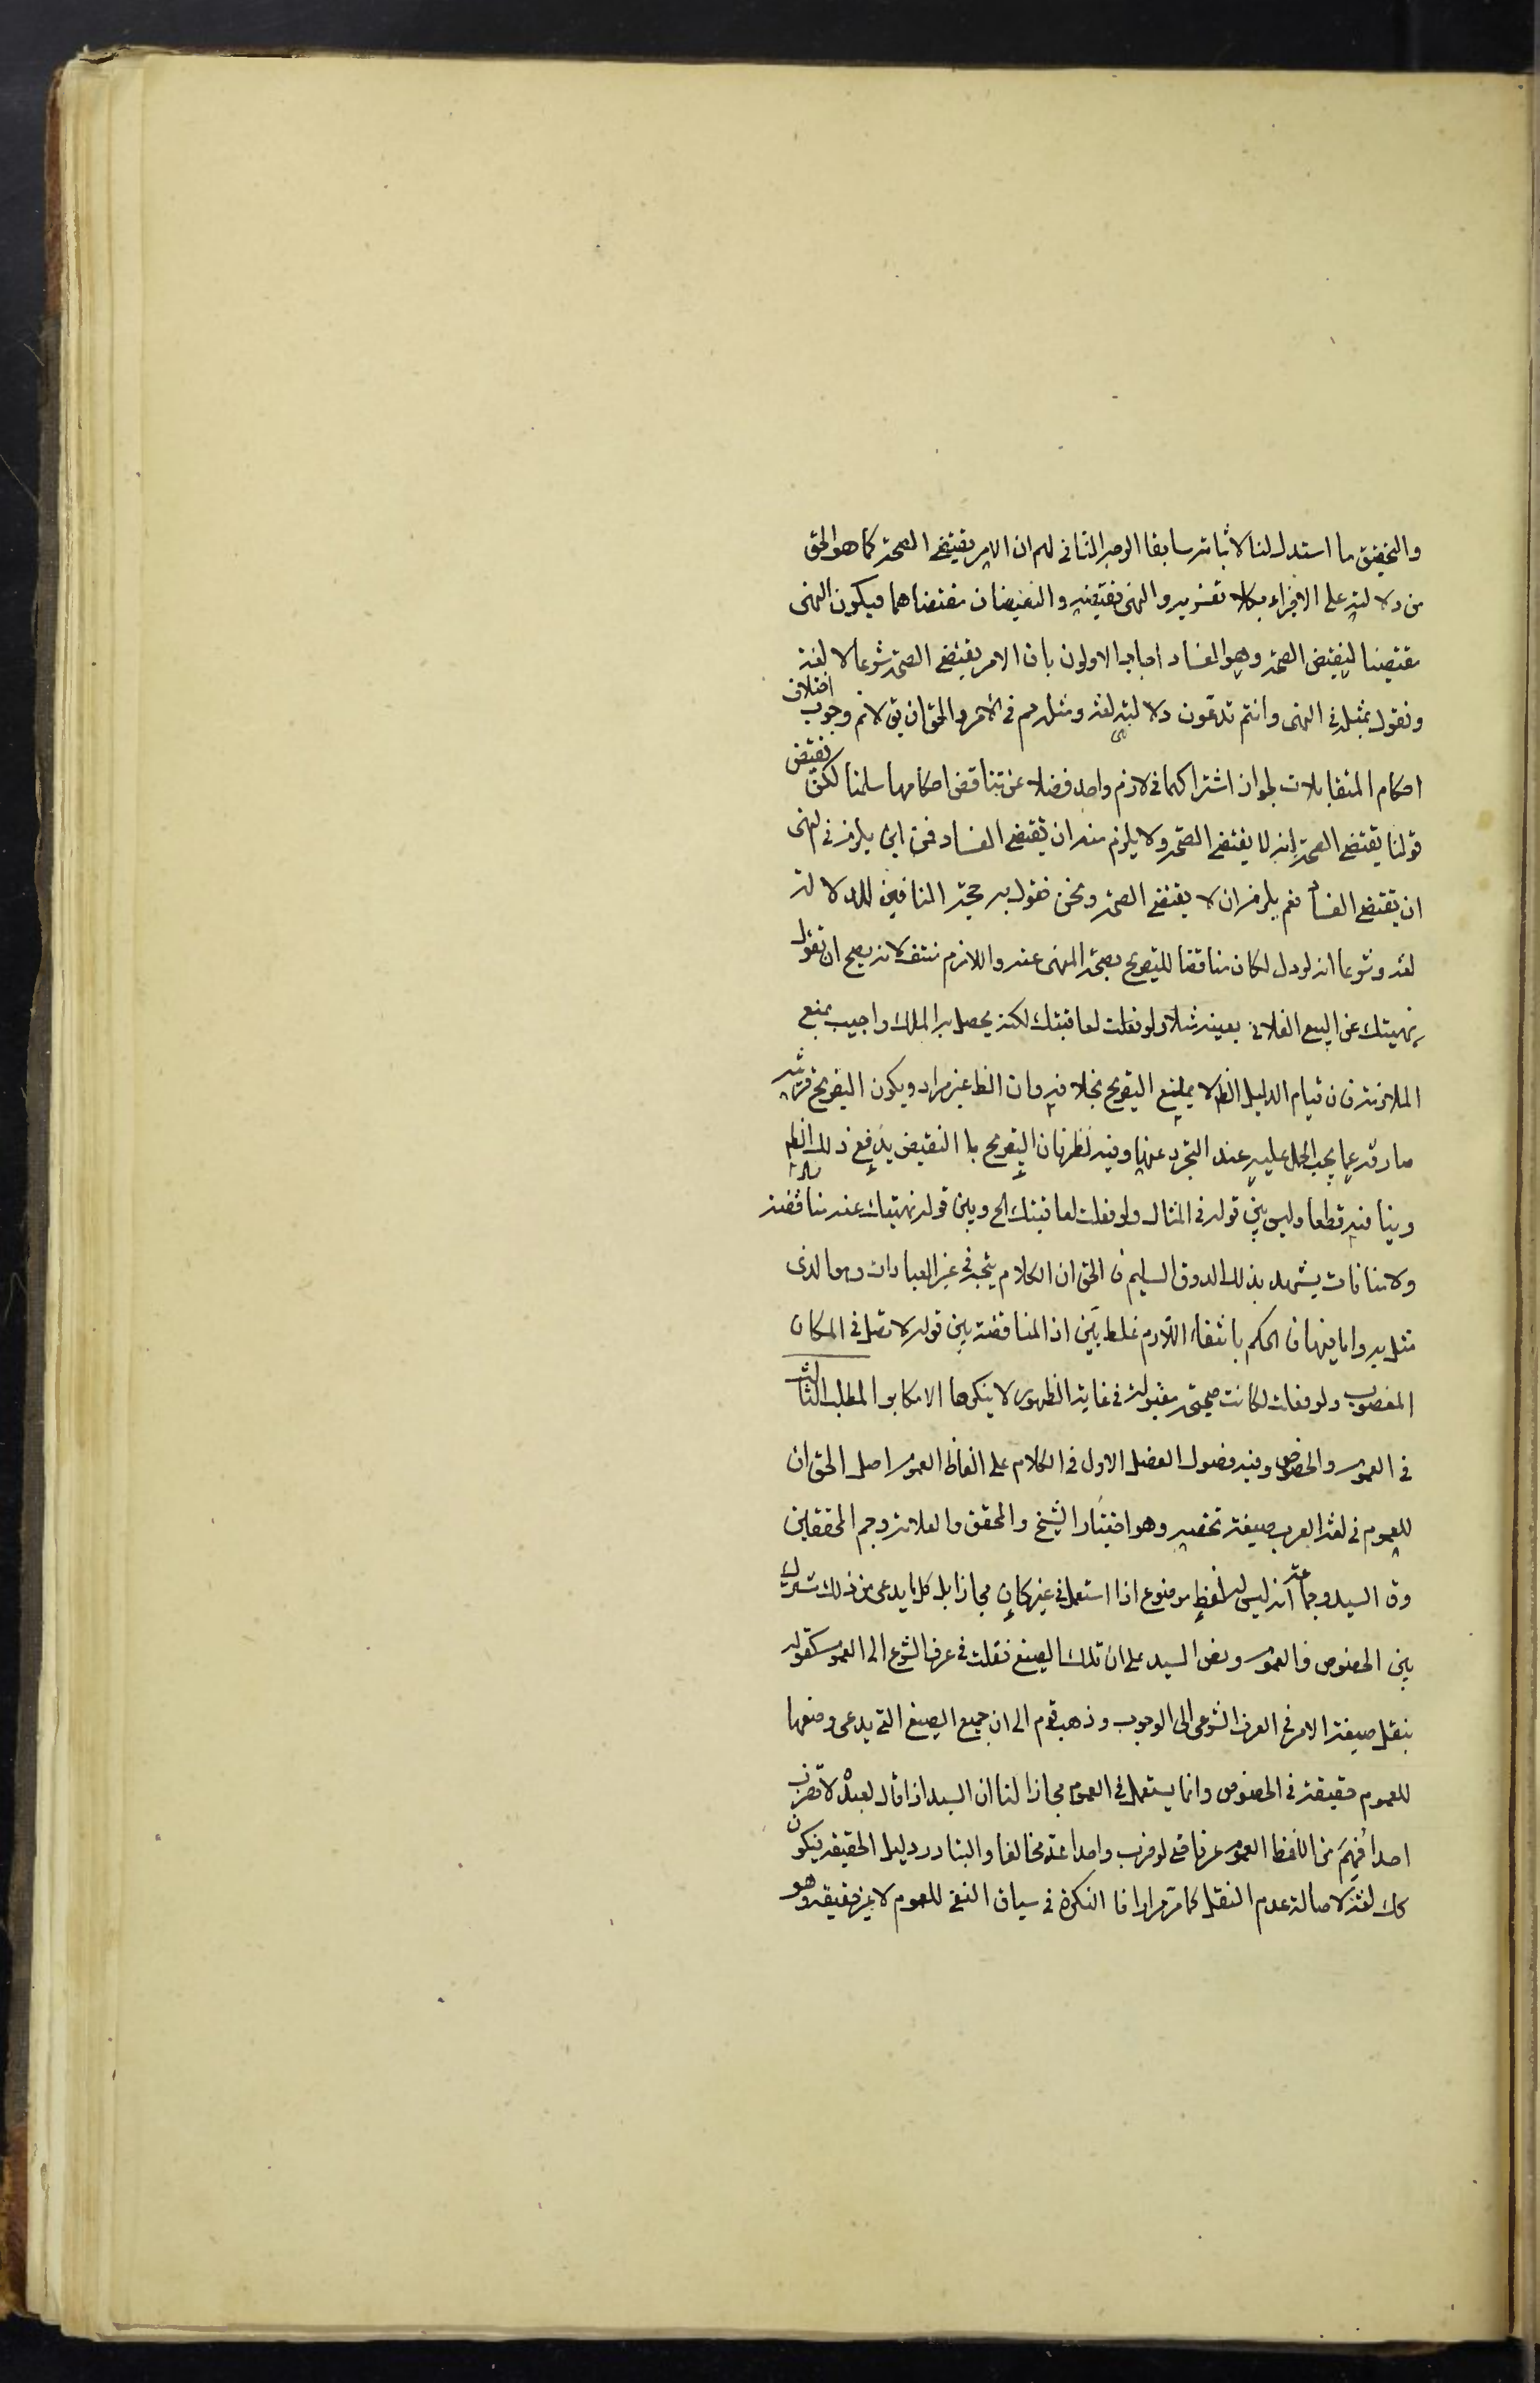 والتحقيق ما استدل لنا لاثباته سابقا الوجه الثانى لهم ان الامر يقتضى الصحة كما هو الحق
من دلالته على الاجزاء بكلا تفسيريه والنهى نقيضه والنقيضان مقتضاهما فيكون النهى
مقتضيا لنقيض الصحة وهو الفساد اجاب الاولون بان الامر يقتضى الصحة شرعا لا لغة
ونقول بمثله فى النهى وانتم تدعون دلالته لغة ومثله مم فى الامر والحق ان يق لانم وجوب اختلاف
احكام المتقابلات لجواز اشتراكهما فى لازم واحد فضلا عن تناقض احكامها سلمنا لكن نقيض
قولنا يقتضى الصحة انه لا يقتضى الصحة ولا يلزم منه ان يقتضى الفساد فمن اين يلزم فى النهى
ان يقتضى الفساد نعم يلزم ان لا يقتضى الصحة ونحن نقول به حجة النافين للدلالة
لغة وشرعا انه لو دل لكان مناقضا للتصريح بصحة المنهى عنه واللازم منتف لانه يصح ان تقول
نهيتك عن البيع الفلانى بعينه مثلا ولو فعلت لعاقبتك لكنه يحصل به الملك واجيب بمنع
الملازمة فان قيام الدليل الظ لا يمنع التصريح بخلافه وان الظ غير مراد ويكون التصريح قرينة
صارفة عما يجب الحمل عليه عند التجرد عنها وفيه نظر فان التصريح بالنقيض يدفع ذلك الظ
وينافيه قطعا وليس بين قوله فى المثال ولو فعلت لعاقبتك الخ وبين قوله نهيتك عنه مناقضة
ولا منافات يشهد بذلك الذوق السليم فالحق ان الكلام يتجه فى غير العبادات وهو الذى
مثل به واما فيها فالحكم بانتفاء اللازم غلط بيّن اذ المناقضة بين قوله لا تصل فى المكان
المغصوب ولو فعلت لكانت صحيحة مقبولة فى غاية الظهور لا ينكرها الا مكابر المطلب الثالث
فى العموم والخصوص وفيه فصول الفصل الاول فى الكلام على الفاظ العموم اصل الحق ان
للعموم فى لغة العرب صيغة تخصه وهو اختيار الشيخ والمحقق والعلامة وجم المحققين
وق السيد وجماعة انه ليس له لفظ موضوع اذا استعمل فى غيره كان مجازا بل كل ما يدعى من ذلك مشترك
بين الخصوص والعموم ونص السيد على ان تلك الصيغ نقلت فى عرف الشرع الى العموم كقوله
بنقل صيغة الامر فى العرف الشرعى الى الوجوب وذهب قوم الى ان جميع الصيغ التى يدعى وضعها
للعموم حقيقة فى الخصوص وانما يستعمل فى العموم مجازا لنا ان السيد اذا قال لعبده لا تضرب
احدا فهم من اللفظ العموم عرفا حتى لو ضرب واحدا عد مخالفا والتبادر دليل الحقيقة فيكون
كك لغة لاصالة عدم النقل كما مر مرارا فالنكرة فى سياق النفى للعموم لا غير حقيقة وهو